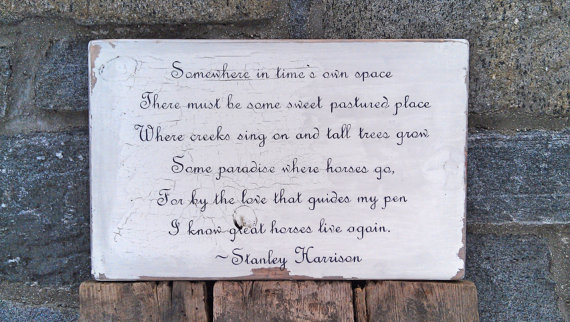 Somewhere in time's own space
There must be some sweet pastured place
Where creeks sing on and tall trees grow
Some paradise where horses go,
For by the love that guides my pen
I know great horses live again.
~Stanley Harrison